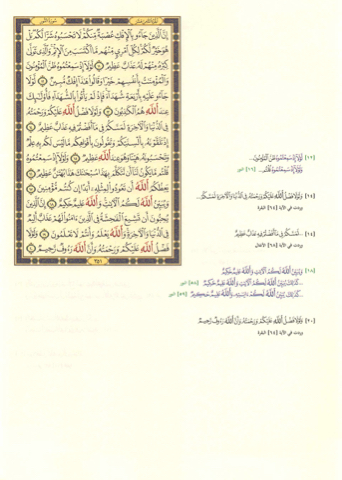 سورة النور
إِنَّ الَّذِينَ جَاءُو بِالْإِفْكِ عُصْبَةٌ مِّنكُمْ لَا تَحْسَبُوهُ شَرًّا لَّكُم بَلْ
هُوَ خَيْرٌ لَّكُمْ لِكُلِّ امْرِئٍ مِّنْهُم مَّا اكْتَسَبَ مِنَ الْإِثْمِ وَالَّذِي تَوَلَّىٰ
كِبْرَهُ مِنْهُمْ لَهُ عَذَابٌ عَظِيمٌ ۝ لَّوْلَا إِذْ سَمِعْتُمُوهُ ظَنَّ الْمُؤْمِنُونَ
وَالْمُؤْمِنَاتُ بِأَنفُسِهِمْ خَيْرًا وَقَالُوا هَٰذَا إِفْكٌ مُّبِينٌ ۝ لَّوْلَا
جَاءُو عَلَيْهِ بِأَرْبَعَةِ شُهَدَاءَ فَإِذْ لَمْ يَأْتُوا بِالشُّهَدَاءِ فَأُولَٰئِكَ
عِندَ اللَّهِ هُمُ الْكَاذِبُونَ ۝ وَلَوْلَا فَضْلُ اللَّهِ عَلَيْكُمْ وَرَحْمَتُهُ
فِي الدُّنْيَا وَالْآخِرَةِ لَمَسَّكُمْ فِي مَا أَفَضْتُمْ فِيهِ عَذَابٌ عَظِيمٌ ۝
إِذْ تَلَقَّوْنَهُ بِأَلْسِنَتِكُمْ وَتَقُولُونَ بِأَفْوَاهِكُم مَّا لَيْسَ لَكُم بِهِ عِلْمٌ
وَتَحْسَبُونَهُ هَيِّنًا وَهُوَ عِندَ اللَّهِ عَظِيمٌ ۝ وَلَوْلَا إِذْ سَمِعْتُمُوهُ
قُلْتُم مَّا يَكُونُ لَنَا أَن نَّتَكَلَّمَ بِهَٰذَا سُبْحَانَكَ هَٰذَا بُهْتَانٌ عَظِيمٌ ۝
يَعِظُكُمُ اللَّهُ أَن تَعُودُوا لِمِثْلِهِ أَبَدًا إِن كُنتُم مُّؤْمِنِينَ ۝
وَيُبَيِّنُ اللَّهُ لَكُمُ الْآيَاتِ وَاللَّهُ عَلِيمٌ حَكِيمٌ ۝ إِنَّ الَّذِينَ
يُحِبُّونَ أَن تَشِيعَ الْفَاحِشَةُ فِي الَّذِينَ آمَنُوا لَهُمْ عَذَابٌ أَلِيمٌ
فِي الدُّنْيَا وَالْآخِرَةِ وَاللَّهُ يَعْلَمُ وَأَنتُمْ لَا تَعْلَمُونَ ۝ وَلَوْلَا
فَضْلُ اللَّهِ عَلَيْكُمْ وَرَحْمَتُهُ وَأَنَّ اللَّهَ رَءُوفٌ رَّحِيمٌ ۝
٣٥١
[١٢] لَّوْلَا إِذْ سَمِعْتُمُوهُ ظَنَّ الْمُؤْمِنُونَ...
وَلَوْلَا إِذْ سَمِعْتُمُوهُ قُلْتُم... [١٦] النور
وَلَوْلَا فَضْلُ اللَّهِ عَلَيْكُمْ وَرَحْمَتُهُ فِي الدُّنْيَا وَالْآخِرَةِ لَمَسَّكُمْ...
وردت في الآية [٦٤] البقرة
[١٤] ...لَمَسَّكُمْ فِي مَا أَفَضْتُمْ فِيهِ عَذَابٌ عَظِيمٌ
وردت في الآية [٦٨] الأنفال
[١٨] وَيُبَيِّنُ اللَّهُ لَكُمُ الْآيَاتِ وَاللَّهُ عَلِيمٌ حَكِيمٌ
...كَذَٰلِكَ يُبَيِّنُ اللَّهُ لَكُمُ الْآيَاتِ وَاللَّهُ عَلِيمٌ حَكِيمٌ [٥٨] النور
...كَذَٰلِكَ يُبَيِّنُ اللَّهُ لَكُمْ آيَاتِهِ وَاللَّهُ عَلِيمٌ حَكِيمٌ [٥٩] النور
[٢٠] وَلَوْلَا فَضْلُ اللَّهِ عَلَيْكُمْ وَرَحْمَتُهُ وَأَنَّ اللَّهَ رَءُوفٌ رَّحِيمٌ
وردت في الآية [٦٤] البقرة